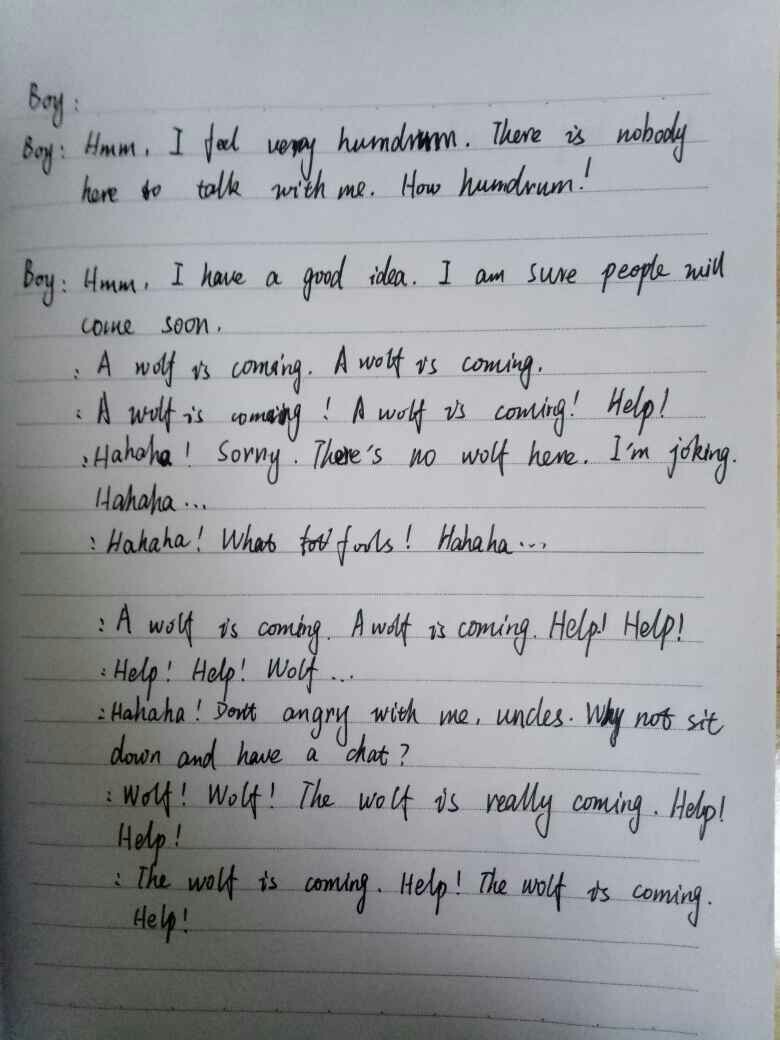 Boy:
Boy: Hmm, I feel very humdrum. There is nobody
here to talk with me. How humdrum!
Boy: Hmm, I have a good idea. I am sure people will
come soon.
: A wolf is coming. A wolf is coming.
: A wolf is coming! A wolf is coming! Help!
: Hahaha! Sorry. There's no wolf here. I'm joking.
Hahaha...
: Hahaha! What fools! Hahaha...
: A wolf is coming. A wolf is coming. Help! Help!
: Help! Help! Wolf...
: Hahaha! Don't angry with me, uncles. Why not sit
down and have a chat?
: Wolf! Wolf! The wolf is really coming. Help!
Help!
: The wolf is coming. Help! The wolf is coming.
Help!